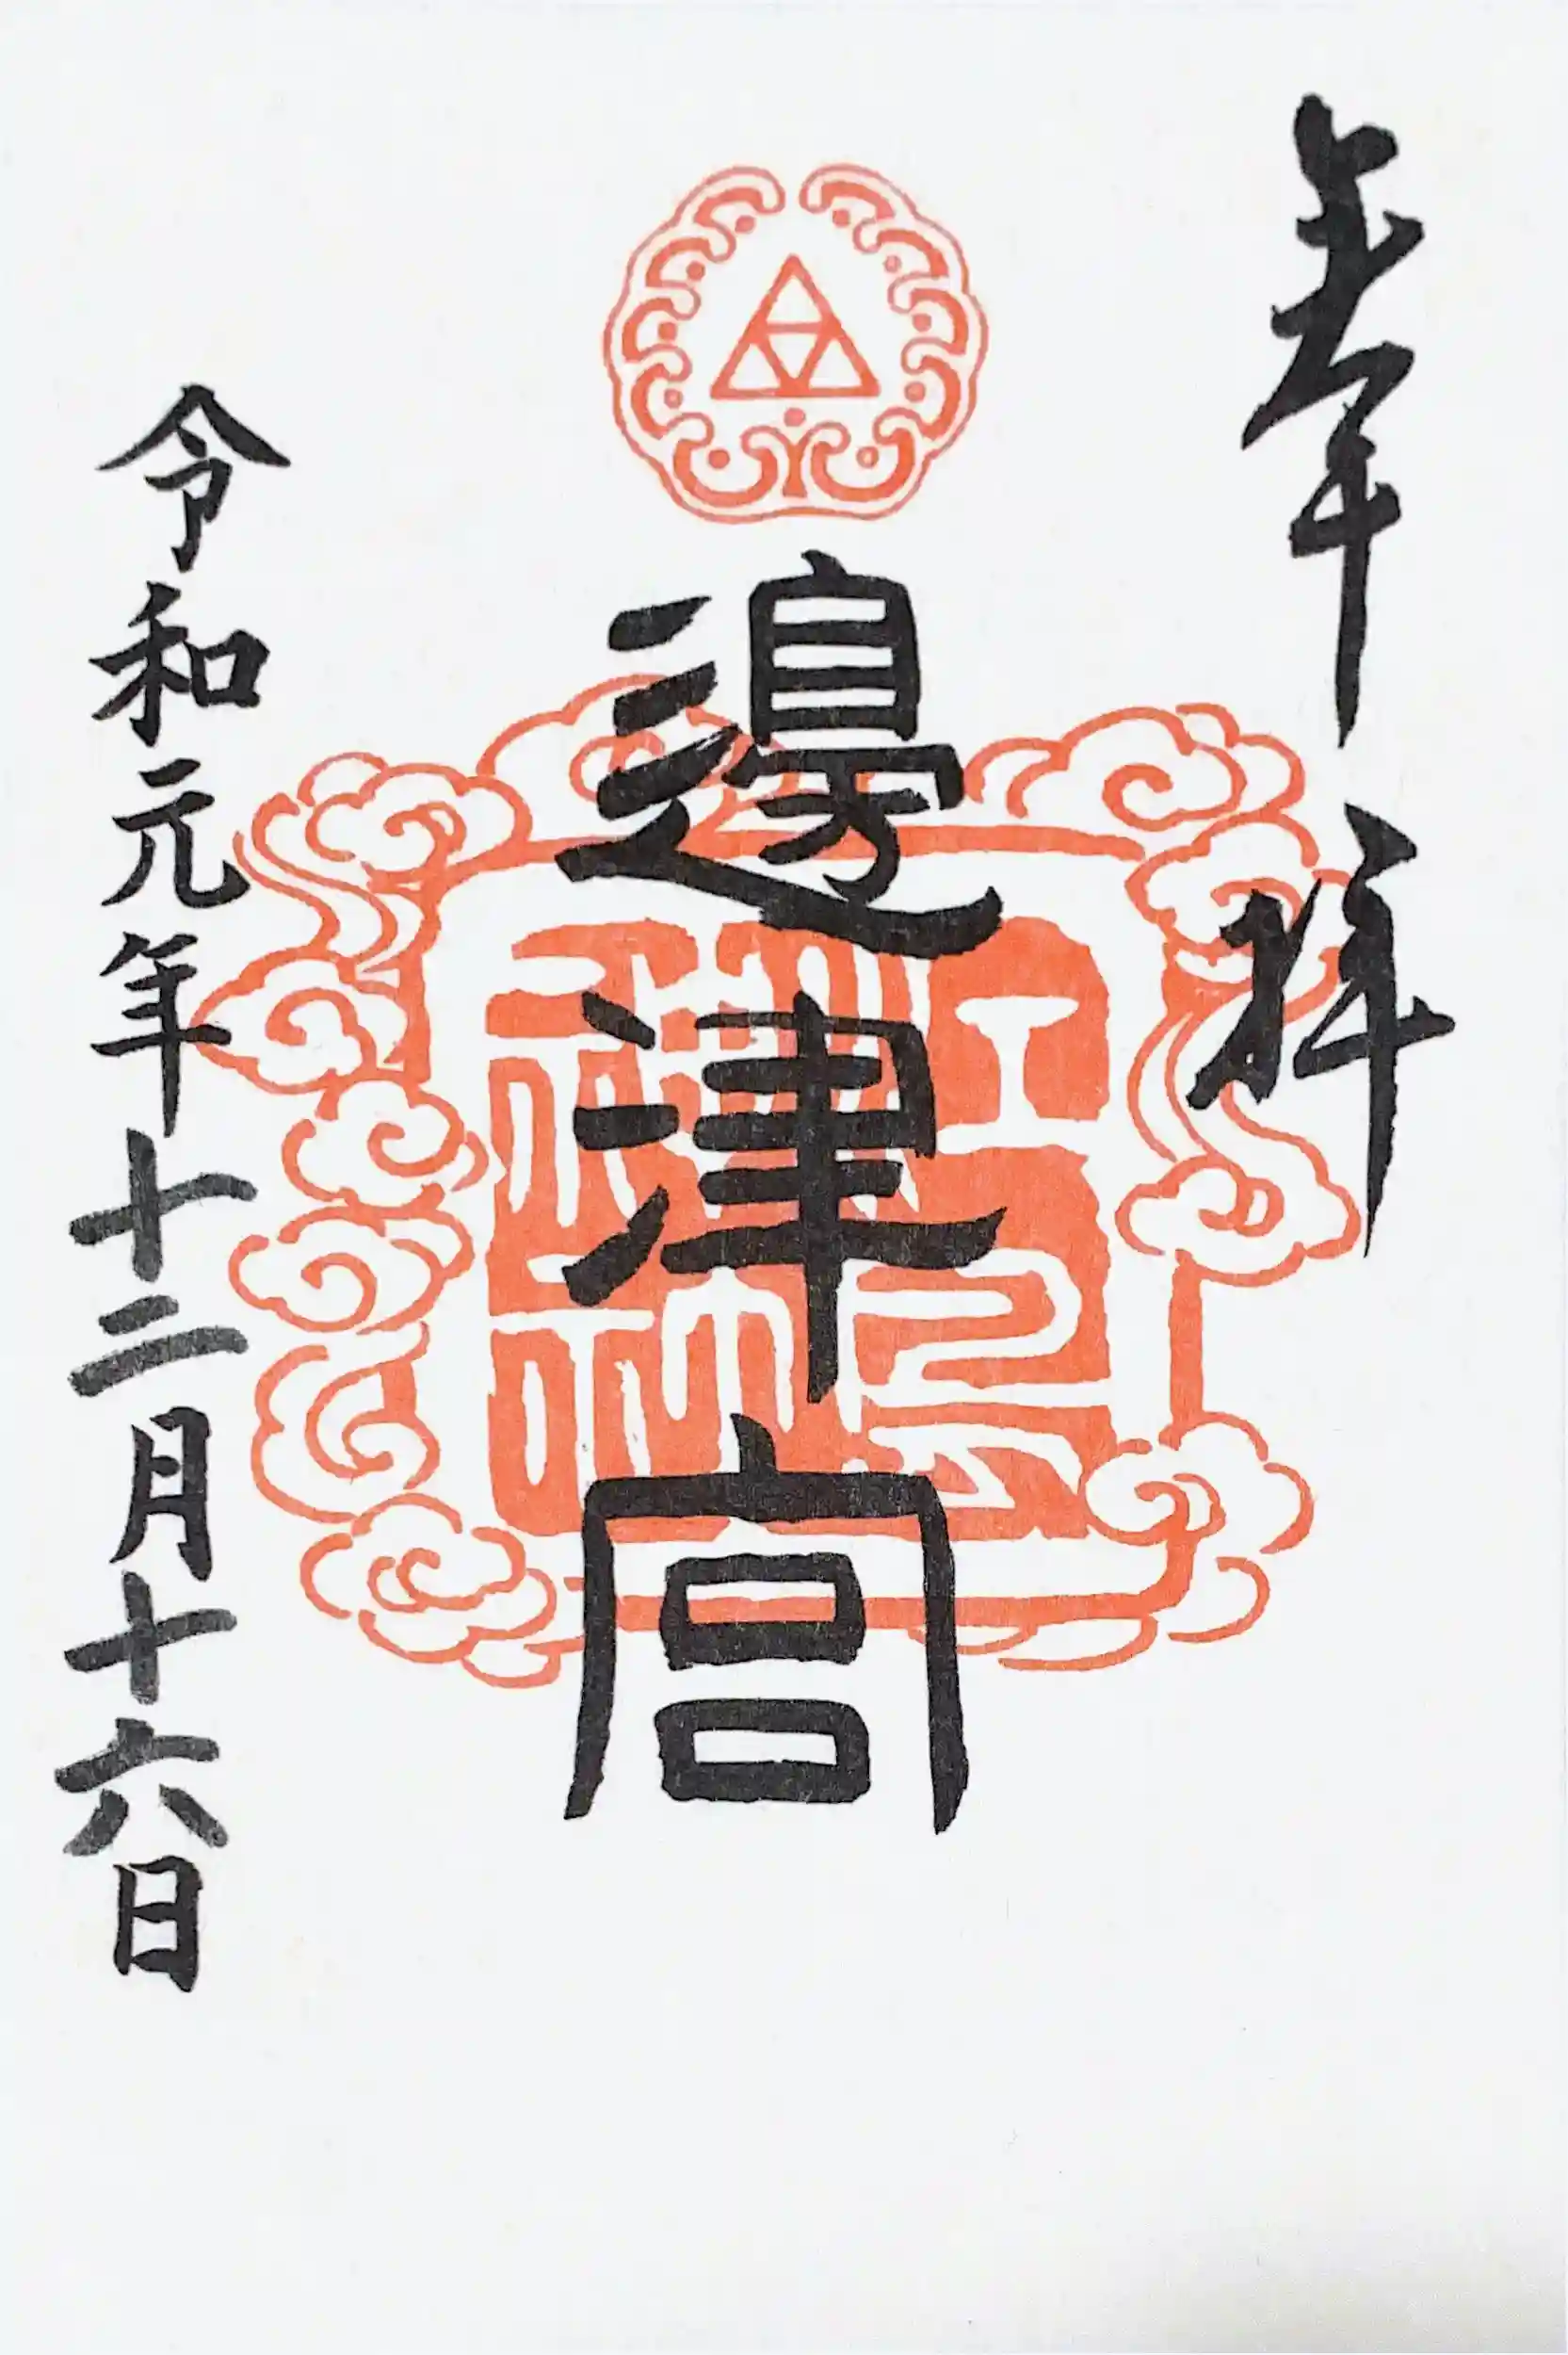 奉拝
邊津宮
令和元年十二月十六日